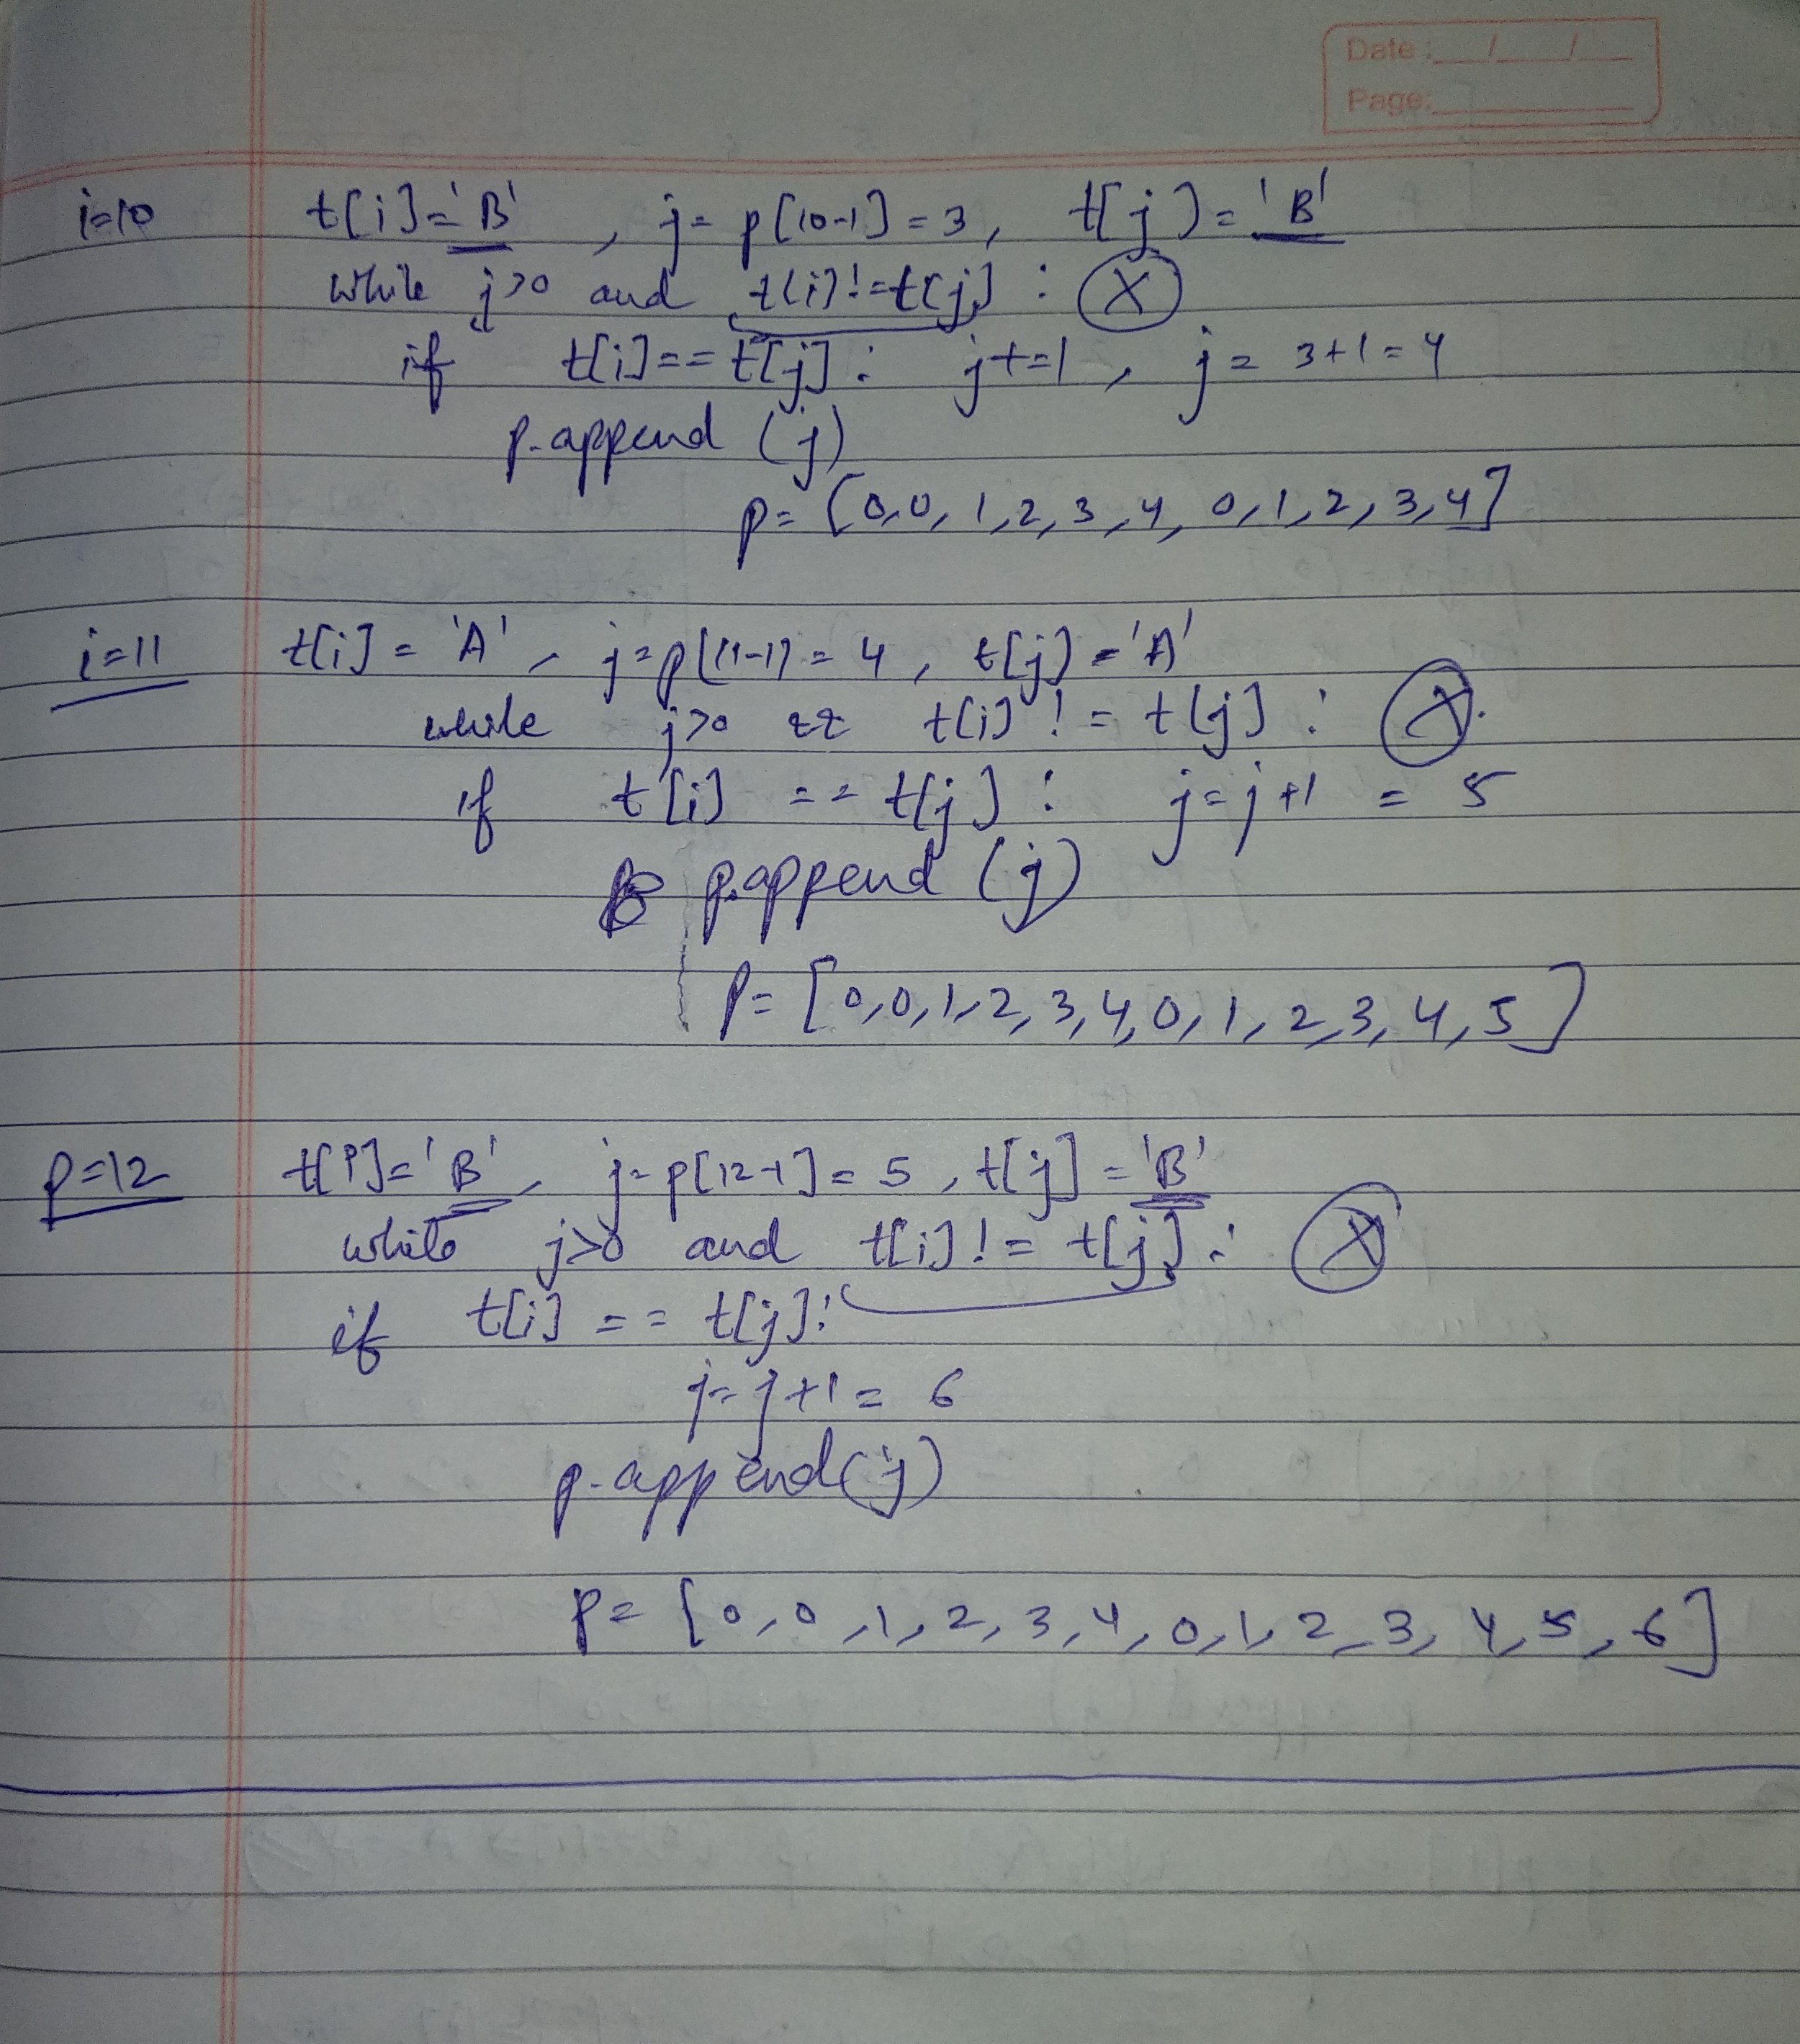 Date: __/__/__
Page: ______
i=10 t[i]='B', j=p[10-1]=3, t[j]='B'
while j>0 and t[i]!=t[j] : X
if t[i]==t[j] : j+=1, j=3+1=4
p.append (j)
p=[0,0,1,2,3,4,0,1,2,3,4]
i=11 t[i]='A', j=p[11-1]=4, t[j]='A'
while j>0 && t[i]!=t[j] : X
if t[i]==t[j] : j=j+1 = 5
p.append (j)
p=[0,0,1,2,3,4,0,1,2,3,4,5]
p=12 t[i]='B', j=p[12-1]=5, t[j]='B'
while j>0 and t[i]!=t[j] : X
if t[i]==t[j]:
j=j+1=6
p.append(j)
p=[0,0,1,2,3,4,0,1,2,3,4,5,6]